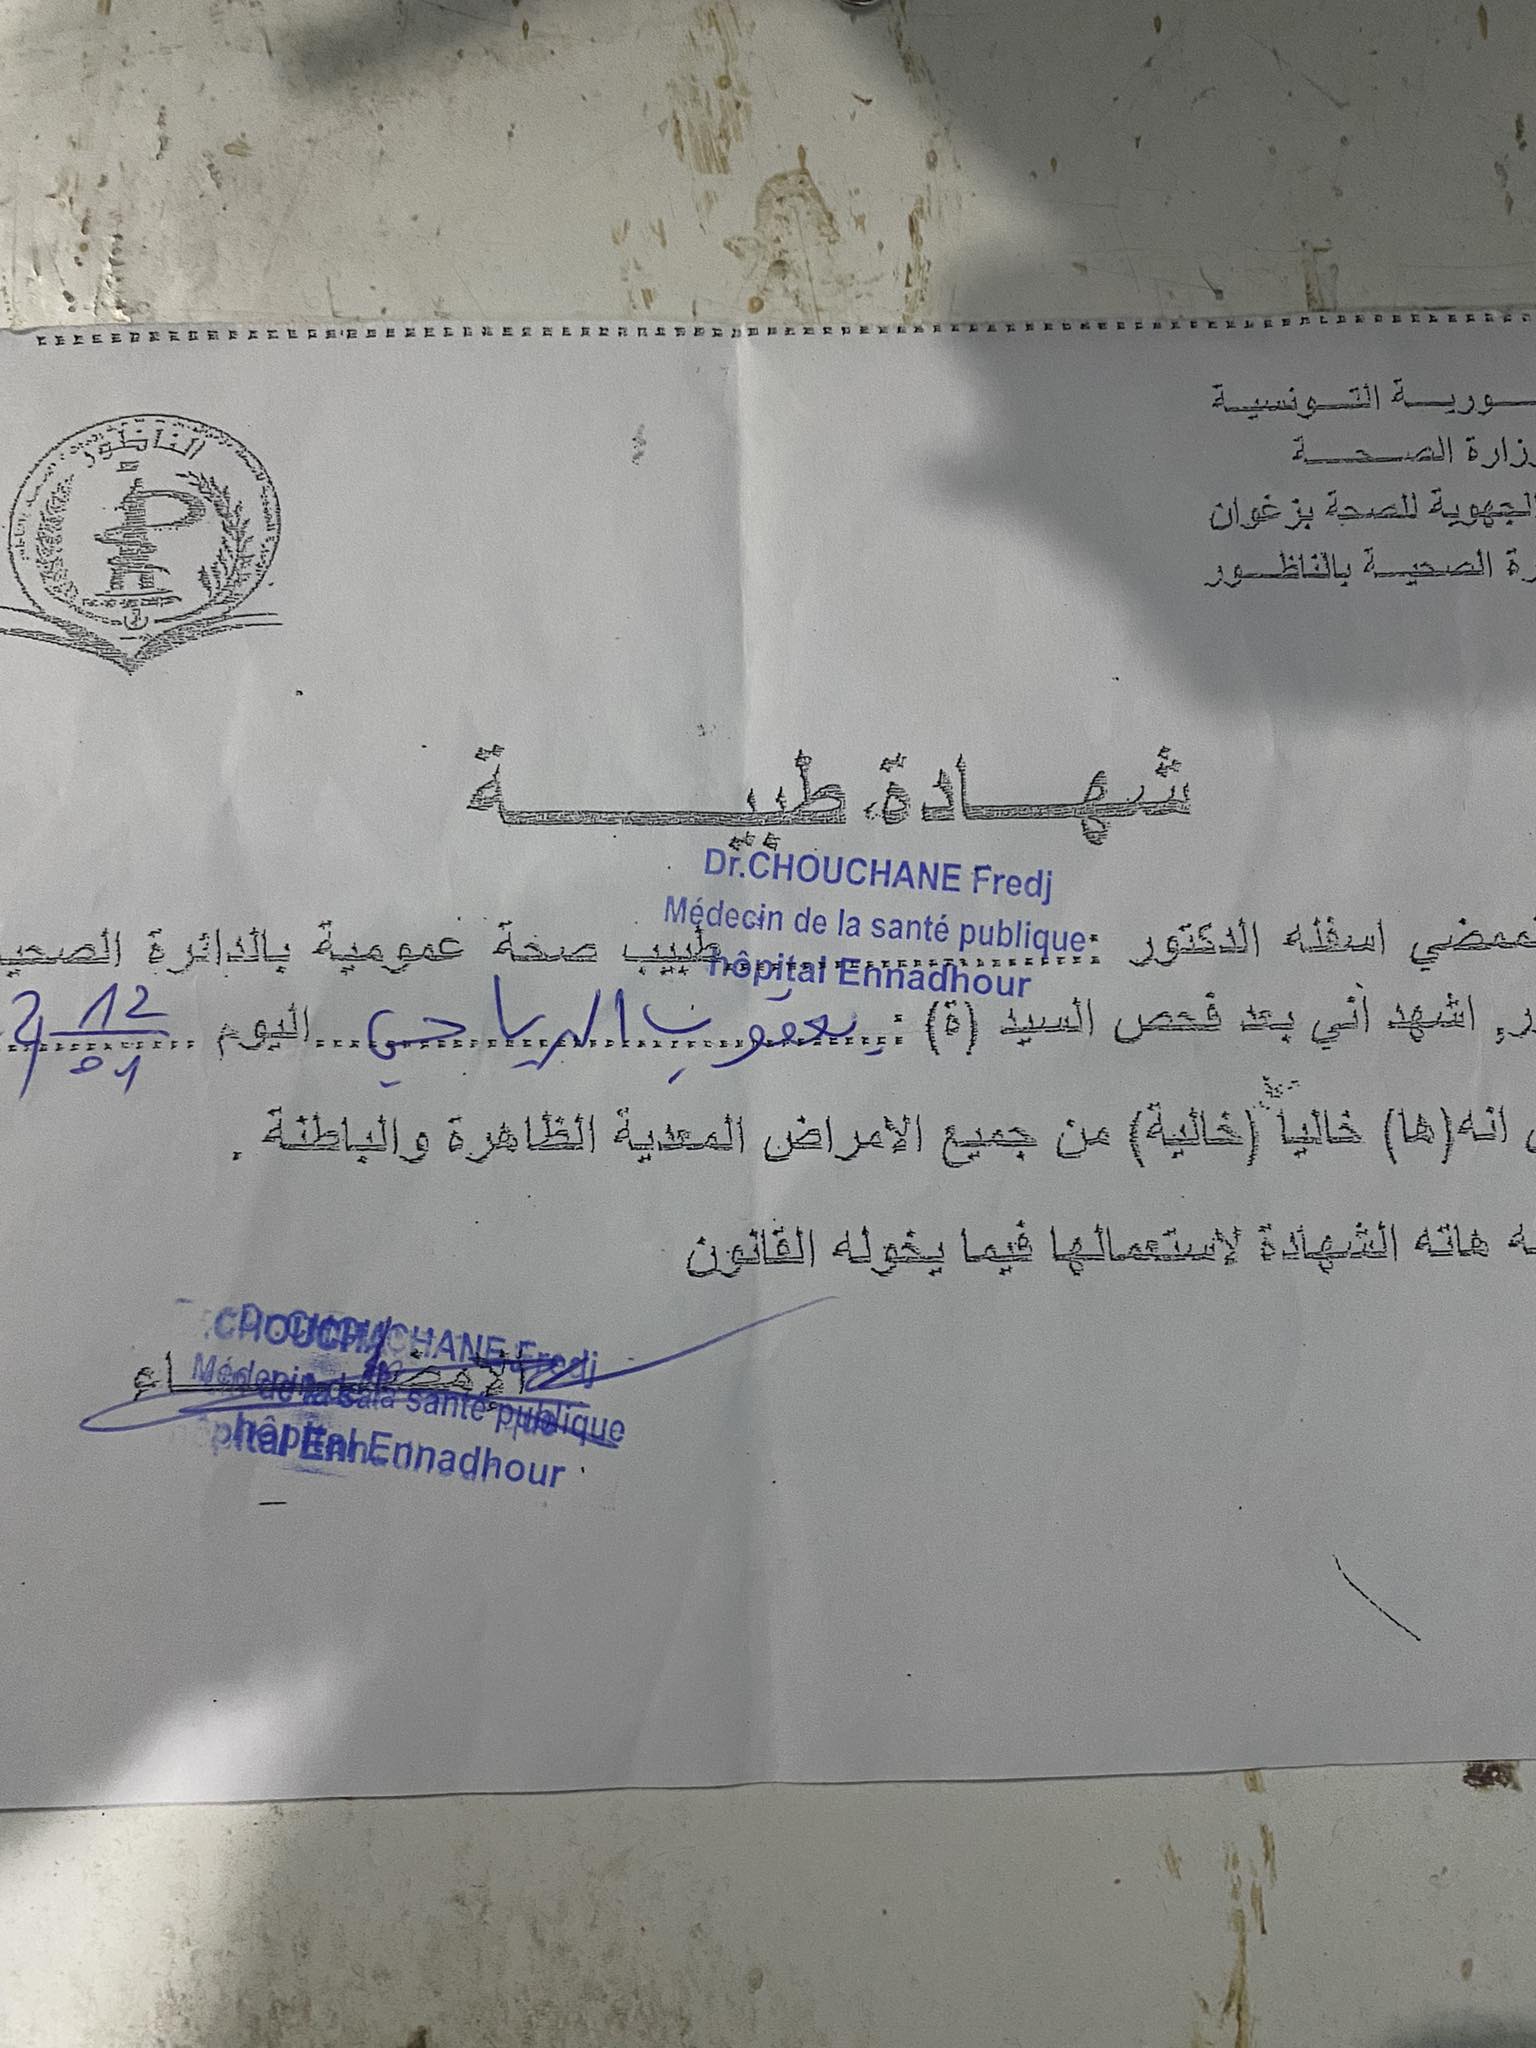 الناظور
ـورية التونسية
وزارة الصحة
الجهوية للصحة بزغوان
ـرة الصحية بالناظور
شهادة طبية
Dr.CHOUCHANE Fredj
Médecin de la santé publique
hôpital Ennadhour
لممضي اسفله الدكتور : طبيب صحة عمومية بالدائرة الصحيـ
ـور, اشهد أني بعد فحص السيد (ة) : يعقوب الرياحي اليوم 12 01
انه(ها) خالياً (خالية) من جميع الامراض المعدية الظاهرة والباطنة .
ـه هاته الشهادة لإستعمالها فيما يخوله القانون
الإمضـــاء
CHOUCHANE Fredj
Médecin de la santé publique
hôpital Ennadhour